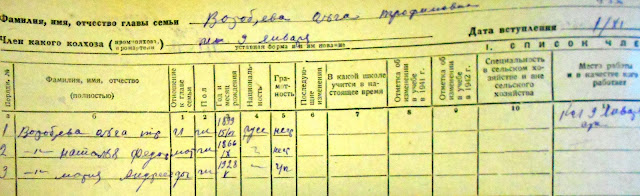 Фамилия, имя, отчество главы семьи Воробьева Ольга Трофимовна
Член какого колхоза (промколхоза, промартели) им 9 января Дата вступления 1/XI
уставная форма и им новании
I. СПИСОК ЧЛЕ
Порядк. №
Фамилия, имя, отчество (полностью)
Отношение к главе семьи
Пол
Год и месяц рождения
Националь-ность
Гра-мот-ность
Последую-щие изменения
В какой школе учится в на-стоящее время
Отметка об изменении в учебе в 1941 г.
Отметка об изменении в учебе в 1942 г.
Специальность в сельском хо-зяйстве и вне сельского хозяйства
Место работы и в качестве кого работает
а б 1 2 3 4 5 6 7 8 9 10
1 Воробьева Ольга тр гл ж 1899 15/IV русс нег Кол 9 Январ
2 -"- Наталья Федор мать ж 1866 IX - нег
3 -"- Мария Андреев дочь ж 1928 X - уч